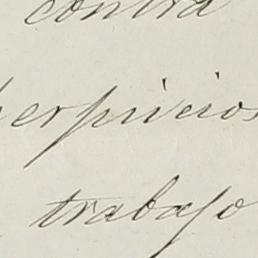 contra
perjuicios
trabajo